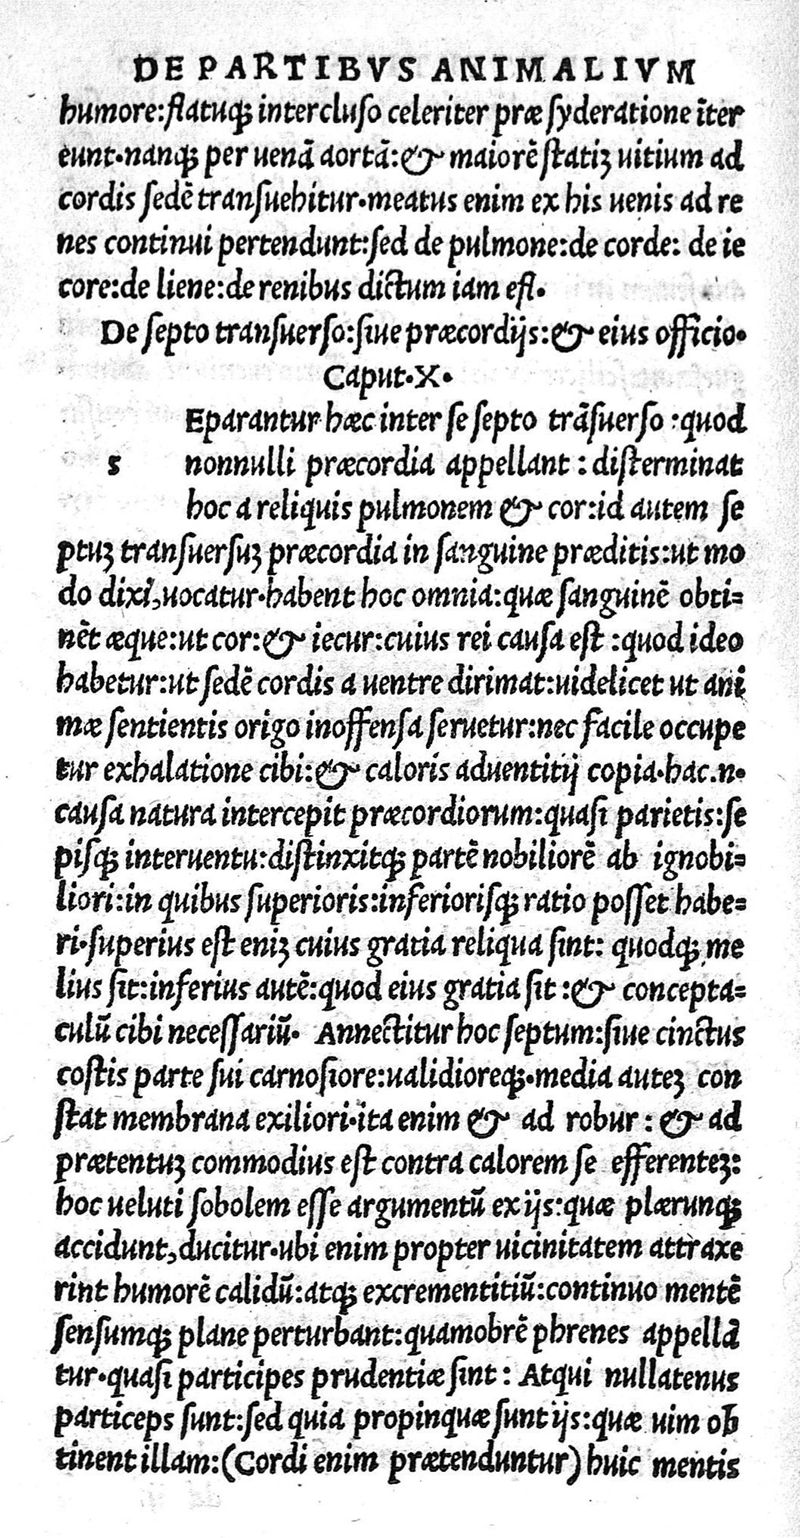 DE PARTIBVS ANIMALIVM
humore:flatuqꝫ intercluso celeriter præ syderatione īter
eunt·nanqꝫ per uenā aortā:& maiorē statiꝫ uitium ad
cordis sedē transuehitur·meatus enim ex his uenis ad re
nes continui pertendunt:sed de pulmone:de corde: de ie
core:de liene:de renibus dictum iam est·
De septo transuerso:siue præcordijs:& eius officio·
Caput·X·
Eparantur hæc inter se septo trāsuerso :quod
s nonnulli præcordia appellant : disterminat
hoc a reliquis pulmonem & cor:id autem se
ptuꝫ transuersuꝫ præcordia in sanguine præditis:ut mo
do dixi,uocatur·habent hoc omnia:quæ sanguinē obti=
nēt æque:ut cor:& iecur:cuius rei causa est :quod ideo
habetur:ut sedē cordis a uentre dirimat:uidelicet ut ani
mæ sentientis origo inoffensa seruetur:nec facile occupe
tur exhalatione cibi:& caloris aduentitij copia·hac.n·
causa natura intercepit præcordiorum:quasi parietis:se
pisqꝫ interuentu:distinxitqꝫ partē nobiliorē ab ignobi=
liori:in quibus superioris:inferiorisqꝫ ratio posset habe=
ri·superius est eniꝫ cuius gratia reliqua sint: quodqꝫ me
lius sit:inferius autē:quod eius gratia sit :& concepta=
culū cibi necessariū· Annectitur hoc septum:siue cinctus
costis parte sui carnosiore:ualidioreqꝫ·media auteꝫ con
stat membrana exiliori·ita enim & ad robur : & ad
prætentuꝫ commodius est contra calorem se efferenteꝫ:
hoc ueluti sobolem esse argumentū ex ijs:quæ plærunqꝫ
accidunt,ducitur·ubi enim propter uicinitatem attraxe
rint humorē calidū:atqꝫ excrementitiū:continuo mentē
sensumqꝫ plane perturbant:quamobrē phrenes appellā
tur·quasi participes prudentiæ sint : Atqui nullatenus
particeps sunt:sed quia propinquæ sunt ijs:quæ uim ob
tinent illam:(Cordi enim prætenduntur) huic mentis